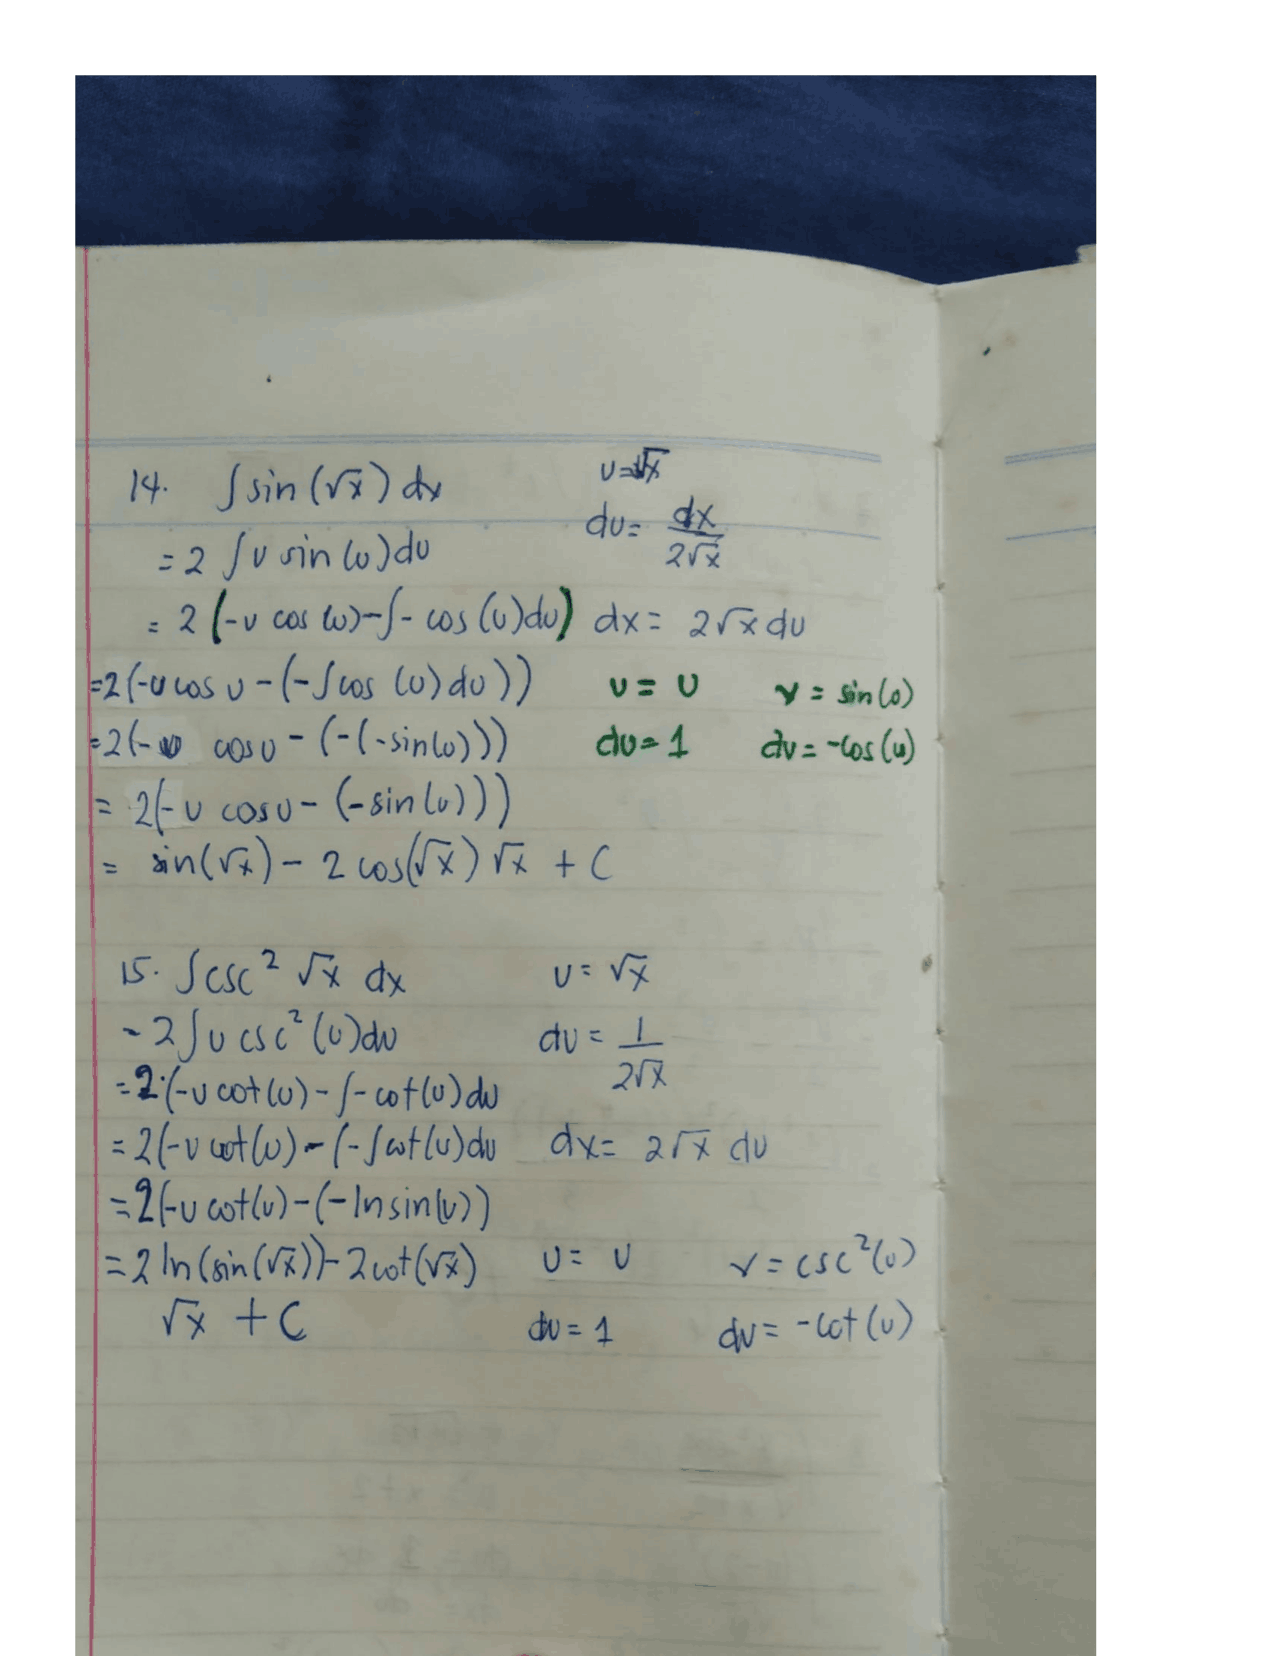 14. ∫ sin (√x) dx
u=√x
du= dx/2√x
= 2 ∫ u sin (u) du
= 2 (-u cos (u) - ∫ - cos (u) du)
dx= 2√x du
=2(-u cos u - (-∫ cos (u) du))
u = u v = sin(u)
=2(-u cos u - (-(-sin(u)))
du=1 dv= -cos(u)
= 2(-u cos u - (-sin (u)))
= sin(√x) - 2 cos(√x) √x + C
15. ∫ csc² √x dx
u= √x
- 2∫ u csc² (u) du
du = 1/2√x
=2·(-u cot(u) - ∫ - cot(u) du
=2(-u cot(u) - (-∫ cot(u) du
dx= 2√x du
=2(-u cot(u) - (-ln sin(u))
=2 ln(sin(√x)) - 2 cot(√x)
u= u v= csc²(u)
√x + C
du=1 dv= -cot(u)